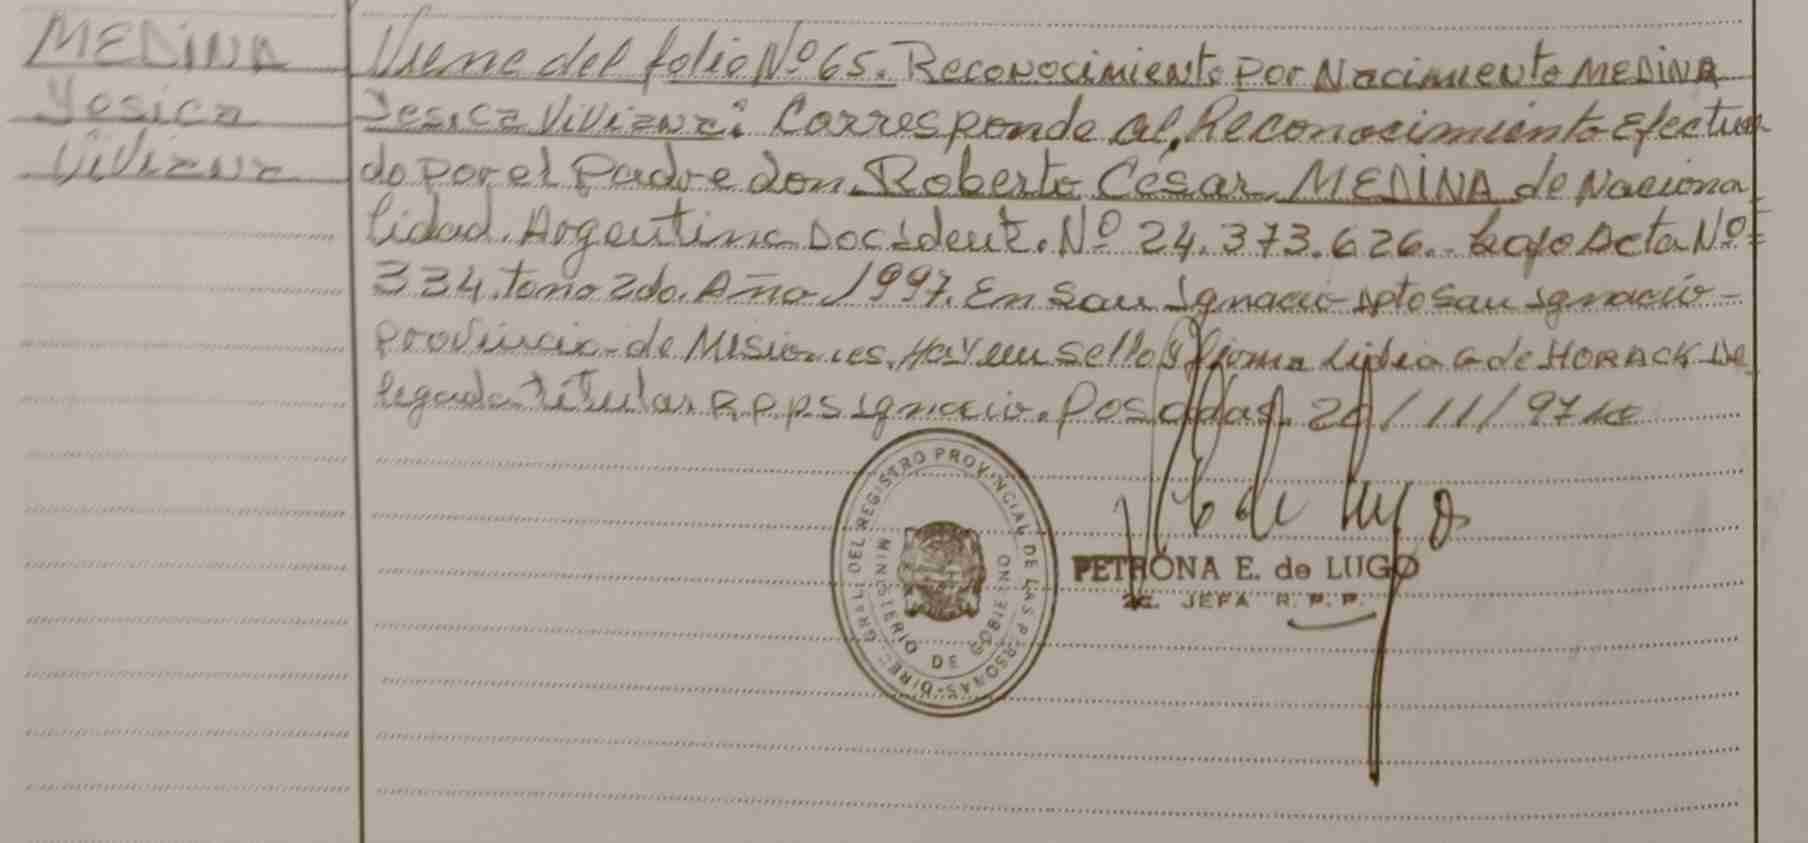 MEDINA
Yesica
Viviana
Viene del folio Nº 65. Reconocimiento por Nacimiento MEDINA
Yesica Viviana: Corresponde al, Reconocimiento Efectua
do por el Padre don Roberto César MEDINA de Naciona
lidad. Argentina Doc. Ident. Nº 24.373.626.- bajo Acta Nº
334. tomo 2do. Año 1997. En San Ignacio Dpto San Ignacio-
Provincia de Misiones. Hay un sello y firma Lidia G de HORACK De
legada titular R.P.P S Ignacio. Posadas. /11/97
DIREC. GRAL. DEL REGISTRO PROVINCIAL DE LAS PERSONAS
MINISTERIO DE GOBIERNO
PETRONA E. de LUGO
JEFA R. P. P.